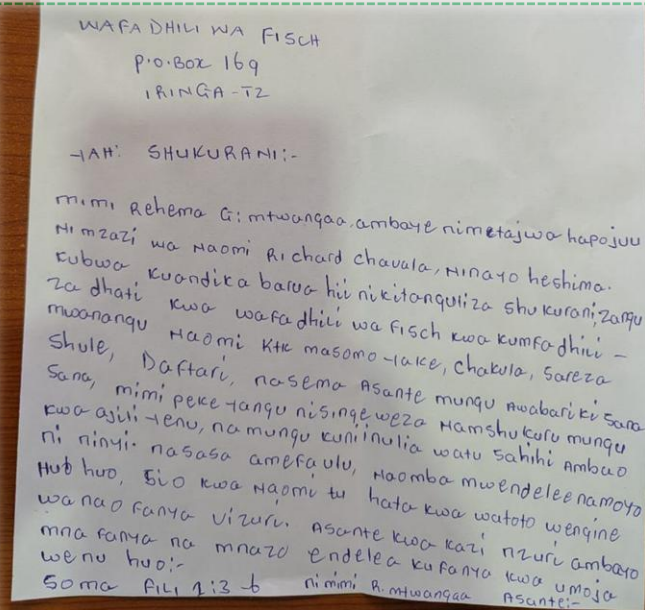 WAFADHILI WA FISCH
P.O.BOX 169
IRINGA-TZ
YAH: SHUKURANI:-
mimi Rehema G: mtwangaa, ambaye nimetajwa hapojuu
Ni mzazi wa Naomi Richard chavala, Ninayo heshima.
kubwa kuandika barua hii nikitanguliza shukurani, zangu
za dhati kwa wafadhili wa Fisch kwa kumfadhili -
mwanangu Naomi Ktk masomo yake, chakula, sareza
Shule, Daftari, nasema Asante mungu Awabariki sana
Sana, mimi peke yangu nisingeweza Namshukuru mungu
kwa ajili yenu, na mungu kuniinulia watu sahihi Ambao
ni ninyi. nasasa amefaulu, Naomba mwendelee namoyo
Hub huo, Sio kwa Naomi tu hata kwa watoto wengine
wanao fanya vizuri. Asante kwa kazi nzuri ambayo
mna fanya na mnazo endelea kufanya kwa umoja
wenu huo:-
Soma FILI 1:3-6 ni mimi R.mtwangaa Asante:-